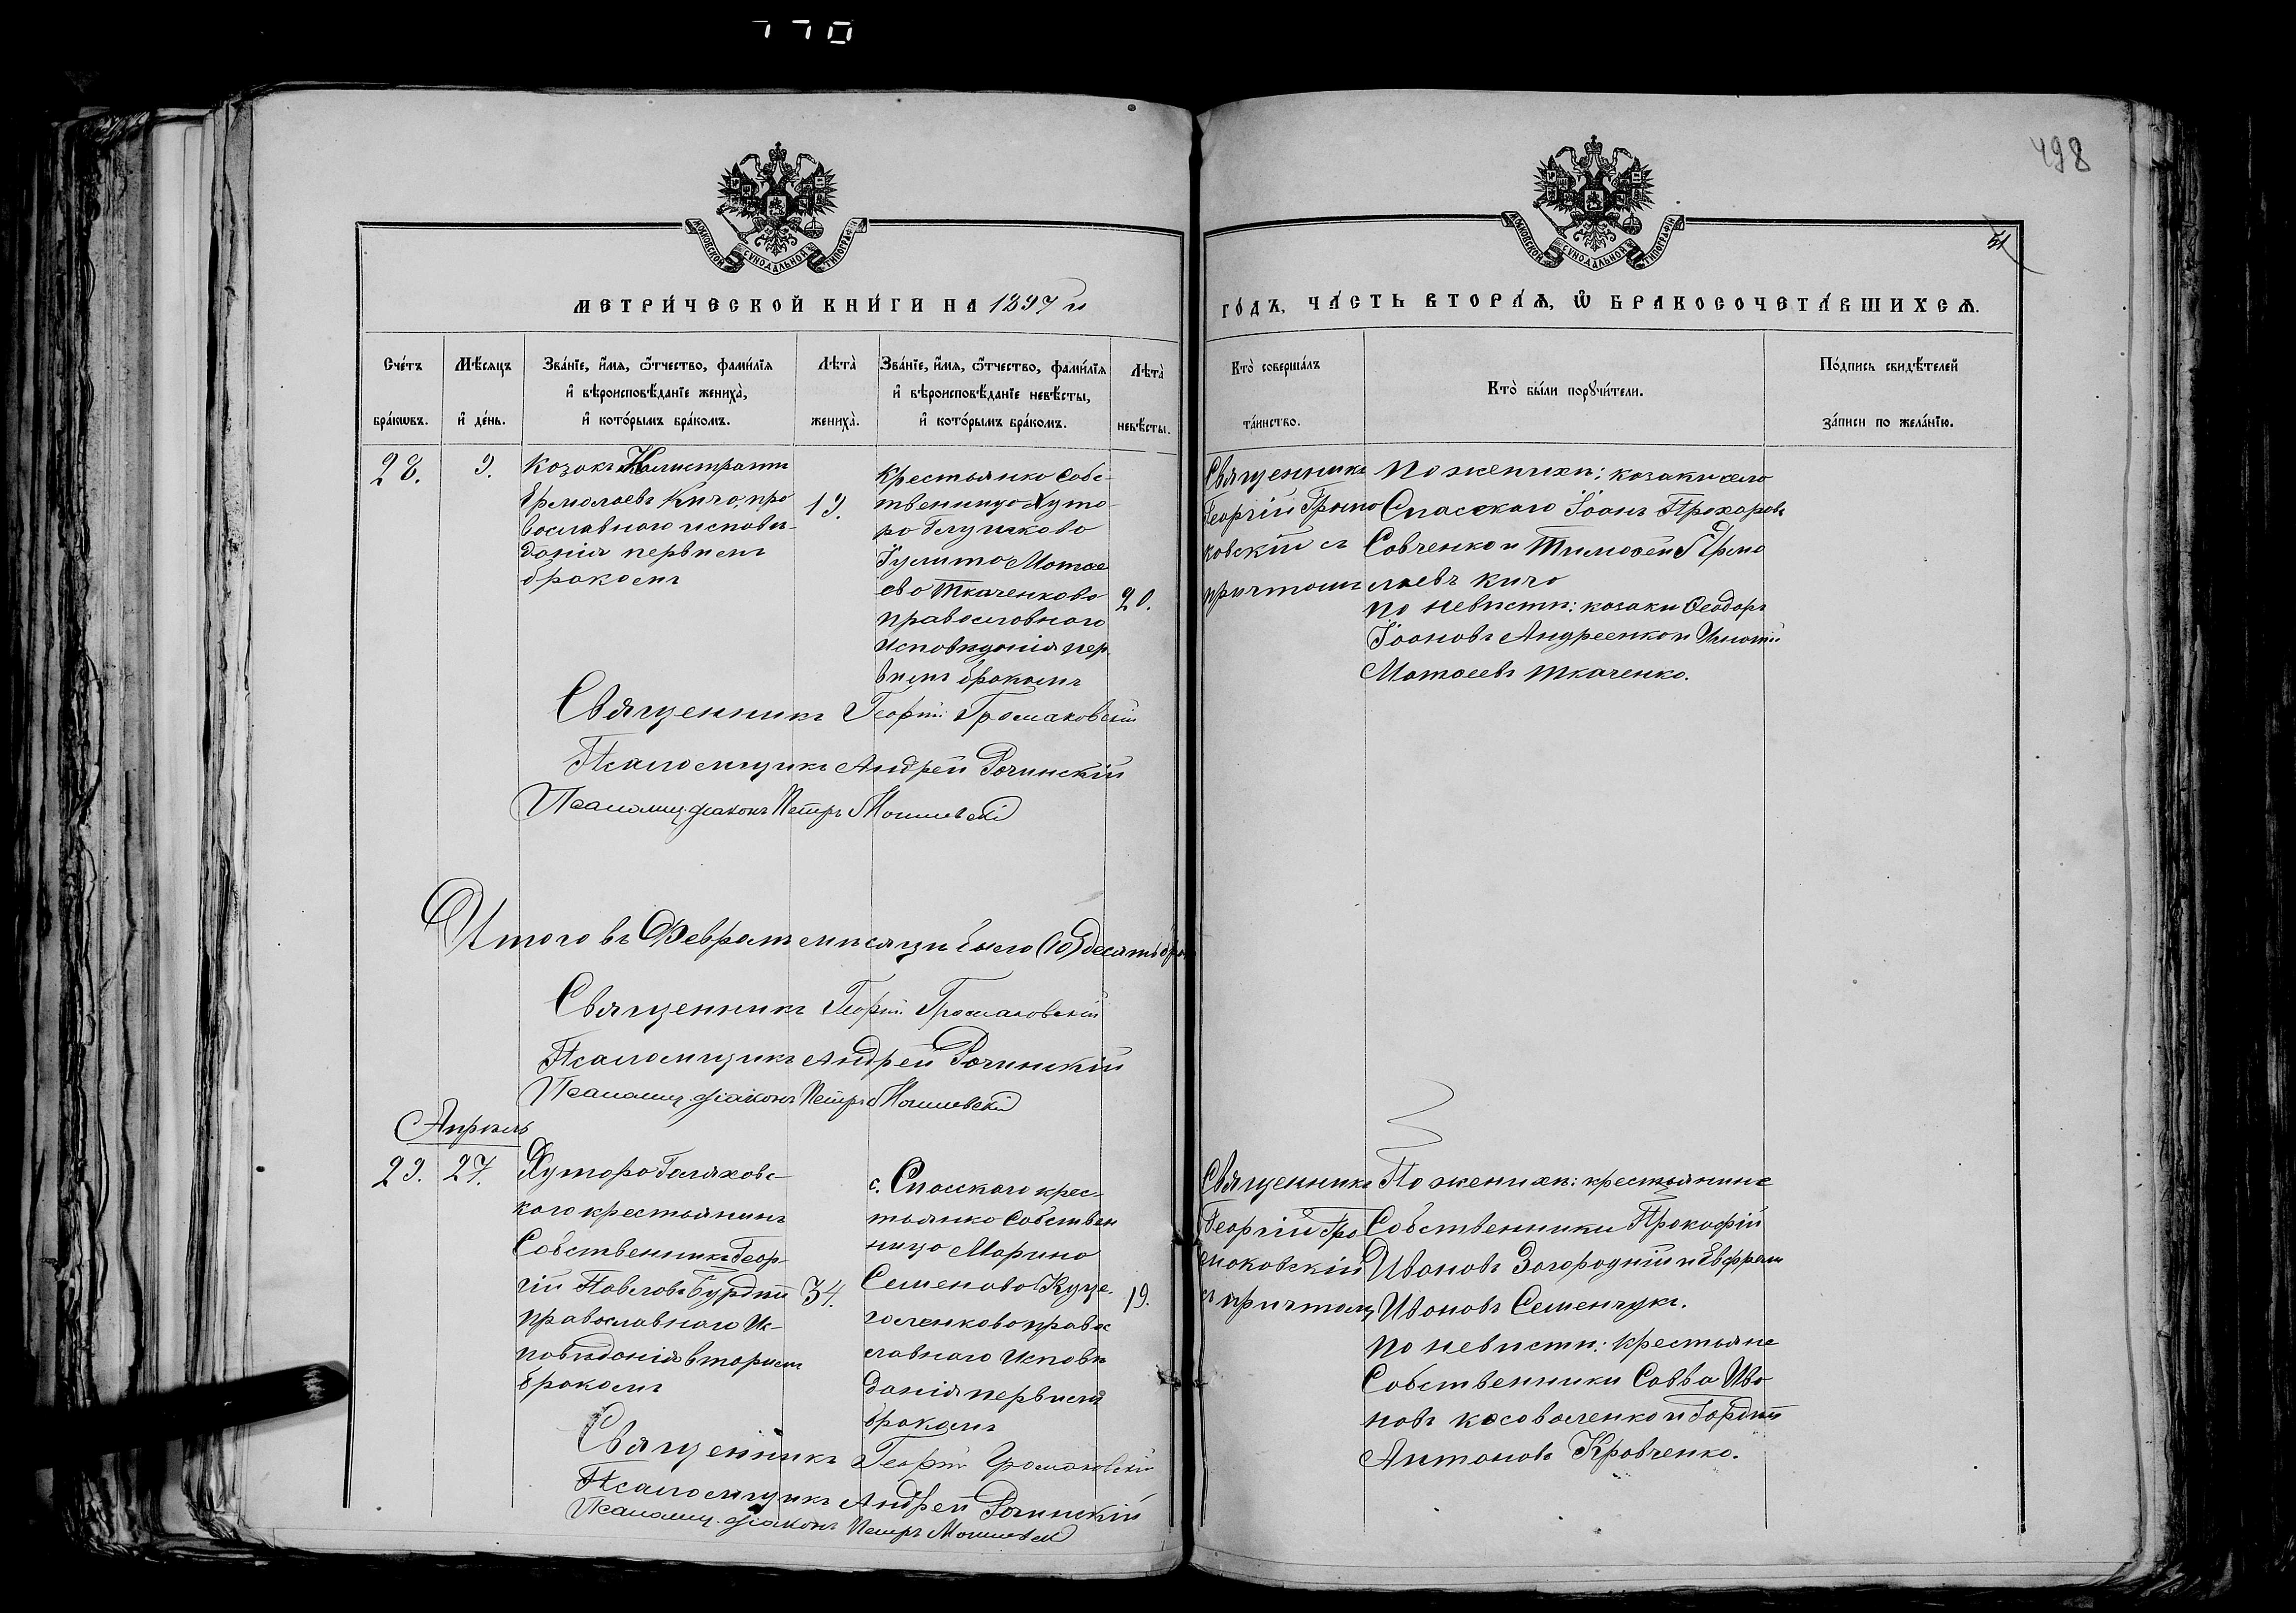 770
498
МОСКОВСКОЙ СѴНОДАЛЬНОЙ ТИПОГРАФІИ
МОСКОВСКОЙ СѴНОДАЛЬНОЙ ТИПОГРАФІИ
51
МЕТРИ́ЧЕСКОЙ КНИ́ГИ НА 1897 й
ГО́ДЪ, ЧА́СТЬ ВТОРА́Ѧ, Ѿ БРАКОСОЧЕТА́ВШИХСѦ.
Сче́тъ бра́кѡвъ.
Мѣ́сяцъ и҆ де́нь.
Зва́нїе, и҆́мя, ѻ҆́тчество, фами́лїя
и҆ вѣроисповѣ́данїе жениха̀,
и҆ кото́рымъ бра́комъ.
Лѣта̀ жениха̀.
Зва́нїе, и҆́мя, ѻ҆́тчество, фами́лїя
и҆ вѣроисповѣ́данїе невѣ́сты,
и҆ кото́рымъ бра́комъ.
Лѣта̀ невѣ́сты.
Кто̀ соверша́лъ
та́инство.
Кто̀ бы́ли порꙋчи́тели.
По́дпись свидѣ́телей
за́писи по жела́нїю.
28.
9.
Козакъ Калистратъ
Ермолаевъ Кичо, пра
вославнаго исповѣ-
данія первымъ
бракомъ
19.
Крестьянка Собс-
твенница Хуто-
ра Глушкова
Іулита Матѳе
ева Ткаченкова
православнаго
исповѣданія пер
вымъ бракомъ
20.
Священникъ
Георгій Громо
ковскій съ
причтомъ
По женихѣ: козаки села
Спасскаго Іоанъ Прохоровъ
Савченко и Тимоѳей Ермо
лаевъ Кичо
по невѣстѣ: козаки Ѳеодоръ
Іоановъ Андреенко и Игнатій
Матѳеевъ Ткаченко.
Священникъ Георгій Громаковскій
Псаломщикъ Андрей Рочинскій
Псаломщ. діаконъ Петръ
Итого въ Февралѣ мѣсяцѣ было (10) десять брак
Священникъ Георгій Громаковскій
Псаломщикъ Андрей Рочинскій
Псаломщ. діаконъ Петръ
Апрѣль
29.
27.
Хутора Галяховс-
каго крестьянинъ
Собственникъ Геор-
гій Павловъ Бурдый
православнаго Ис-
повѣданія вторымъ
бракомъ
34.
с. Спасскаго крес-
тьянка Собствен
ница Марина
Семенова Куце-
галенкова правос
славнаго Исповѣ
данія первымъ
бракомъ
19.
Священникъ
Георгій Гро
моковскій
съ причтомъ
По женихѣ: крестьянине
Собственники Прокофій
Ивановъ Загородній и Евфрем
Ивановъ Семенчукъ.
по невѣстѣ: крестьяне
Собственники Савва Ива
новъ Косоваленко и Гордѣй
Антоновъ Кравченко.
Священникъ Георгій Громаковскій
Псаломщикъ Андрей Рочинскій
Псаломщ. діаконъ Петръ